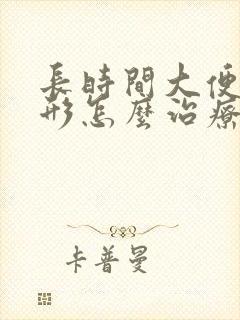 長時間大便
形怎麼治療
卡普曼